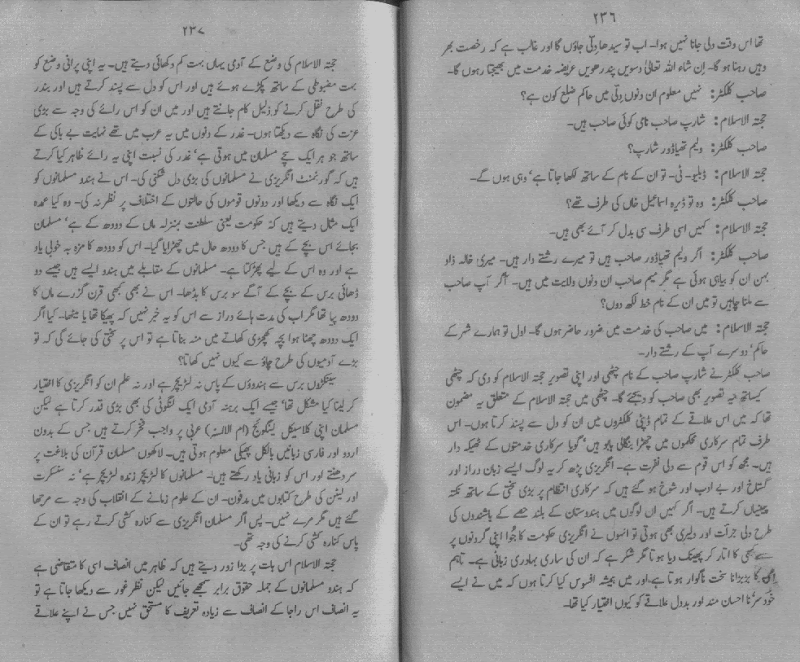 ۲۳۶
تھا اس وقت دلی جانا نہیں ہوا۔ اب تو سیدھا دلّی جاؤں گا اور غالب ہے کہ رخصت بھر
وہیں رہنا ہو گا۔ اِن شاء اللہ تعالیٰ دسویں پندرھویں عریضہ خدمت میں بھیجتا رہوں گا۔
صاحب کلکٹر: نہیں معلوم ان دنوں دلّی میں حاکم ضلع کون ہے؟
حجتہ الاسلام: شارپ صاحب نامی کوئی صاحب ہیں۔
صاحب کلکٹر: ولیم تھیاڈور شارپ؟
حجتہ الاسلام: ڈبلیو۔ ٹی۔ تو ان کے نام کے ساتھ لکھا جاتا ہے، وہی ہوں گے۔
صاحب کلکٹر: وہ تو ڈیرہ اسماعیل خاں کی طرف تھے؟
حجتہ الاسلام: کہیں اسی طرف سی بدل کر آئے بھی ہیں۔
صاحب کلکٹر: اگر ولیم تھیاڈور صاحب ہیں تو میرے رشتے دار ہیں۔ میری خالہ زاد
بہن ان کو بیاہی ہوئی ہے مگر میم صاحب ان دنوں ولایت میں ہیں۔ اگر آپ صاحب
سے ملنا چاہیں تو میں ان کے نام خط لکھ دوں؟
حجتہ الاسلام: میں صاحب کی خدمت میں ضرور حاضر ہوں گا۔ اول تو ہمارے شہر کے
حاکم، دوسرے آپ کے رشتے دار۔
صاحب کلکٹر نے شارپ صاحب کے نام چٹھی اور اپنی تصویر حجتہ الاسلام کو دی کہ چٹھی
کیساتھ یہ تصویر بھی صاحب کو دیجئے گا۔ چٹھی میں حجتہ الاسلام کے متعلق یہ مضمون
تھا کہ میں اس علاقے کے تمام ڈپٹی کلکٹروں میں ان کو دل سے پسند کرتا ہوں۔ اس
طرف تمام سرکاری محکموں میں چھڑا بنگالی بابو ہیں، گویا سرکاری خدمتوں کے ٹھیکہ دار
ہیں۔ مجھ کو اس قوم سے دلی نفرت ہے۔ انگریزی پڑھ کر یہ لوگ ایسے زبان دراز اور
گستاخ اور بے ادب اور شوخ ہو گئے ہیں کہ سرکاری انتظام پر بڑی سختی کے ساتھ نکتہ
چینیاں کرتے ہیں۔ اگر کہیں اں لوگوں میں ہندوستان کے بلند حصے کے باشندوں کی
طرح دلی جرأت اور دلیری بھی ہوتی تو انہوں نے انگریزی حکومت کا جُوا اپنی گردنوں پر
سے کبھی کا اتار کر پھینک دیا ہوتا مگر شکر ہے کہ ان کی ساری بہادری زبانی ہے۔ تاہم
کا بڑبڑانا سخت ناگوار ہوتا ہے۔ اور میں ہمیشہ افسوس کیا کرتا ہوں کہ میں نے ایسے
خود سر نا احسان مند اور بددل علاقے کو کیوں اختیار کیا تھا۔
۲۳۷
حجتہ الاسلام کی وضع کے آدمی یہاں بہت کم دکھائی دیتے ہیں۔ یہ اپنی پرانی وضع کو
بہت مضبوطی کے ساتھ پکڑے ہوئے ہیں اور اس کو دل سے پسند کرتے ہیں اور بندر
کی طرح نقل کرنے کو ذلیل کام جانتے ہیں اور میں ان کو اس رائے کی وجہ سے بڑی
عزت کی نگاہ سے دیکھتا ہوں۔ غدر کے دنوں میں یہ عرب میں تھے نہایت بے باکی کے
ساتھ جو ہر ایک سچے مسلمان میں ہوتی ہے، غدر کی نسبت اپنی یہ رائے ظاہر کیا کرتے
ہیں کہ گورنمنٹ انگریزی نے مسلمانوں کی بڑی دل شکنی کی۔ اس نے ہندو مسلمانوں کو
ایک نگاہ سے دیکھا اور دونوں قوموں کی حالتوں کے اختلاف پر نظر نہ کی۔ وہ کیا عمدہ
ایک مثل دیتے ہیں کہ حکومت یعنی سلطنت بمنزلہ ماں کے دودھ کے ہے، مسلمان
بجائے اس بچے کے ہیں جس کا دودھ حال میں چھڑایا گیا۔ اس کو دودھ کا مزہ بہ خوبی یاد
ہے اور وہ اس کے لیے پھڑکتا ہے۔ مسلمانوں کے مقابلے میں ہندو ایسے ہیں جیسے دو
ڈھائی برس کے بچے کے آگے سو برس کا بڈھا۔ اس نے بھی کبھی قرن گزرے ماں کا
دودھ پیا تھا مگر اب کی مدت ہائے دراز سے اس کو یہ خبر نہیں کہ پھیکا تھا یا میٹھا۔ کیا اگر
ایک دودھ چھٹا ہوا بچہ کھچڑی کھانے میں منہ بناتا ہے تو اس پر سختی کی جائے گی کہ تو
بڑے آدمیوں کی طرح چاؤ سے کیوں نہیں کھاتا؟
سینکڑوں برس سے ہندوؤں کے پاس نہ لٹریچر ہے اور نہ علم ان کو انگریزی کا اختیار
کر لینا کیا مشکل تھا، جیسے ایک برہنہ آدمی ایک لنگوٹی کی بھی بڑی قدر کرتا ہے لیکن
مسلمان اپنی کلاسیکل لینگوئج (ام الالسنہ) عربی پر واجب فخر کرتے ہیں جس کے بدون
اردو اور فارسی زبانیں بالکل پھیکی معلوم ہوتی ہیں۔ لاکھوں مسلمان قرآن کی بلاغت پر
سر دھنتے اور اس کو زبانی یاد رکھتے ہیں۔ مسلمانوں کا لٹریچر زندہ لٹریچر ہے، نہ سنسکرت
اور لیٹن کی طرح کتابوں میں مدفون۔ ان کے علوم زمانے کے انقلاب کی وجہ سے مرجھا
گئے ہیں مگر مرے نہیں۔ پس اگر مسلمان انگریزی سے کنارہ کشی کرتے رہے تو ان کے
پاس کنارہ کشی کرنے کی وجہ تھی۔
حجتہ الاسلام اس بات پر بڑا زور دیتے ہیں کہ ظاہر میں انصاف اسی کا متقاضی ہے
کہ ہندو مسلمانوں کے جملہ حقوق برابر سمجھے جائیں لیکن نظر غور سے دیکھا جاتا ہے تو
یہ انصاف اس راجا کے انصاف سے زیادہ تعریف کا مستحق نہیں جس نے اپنے علاقے